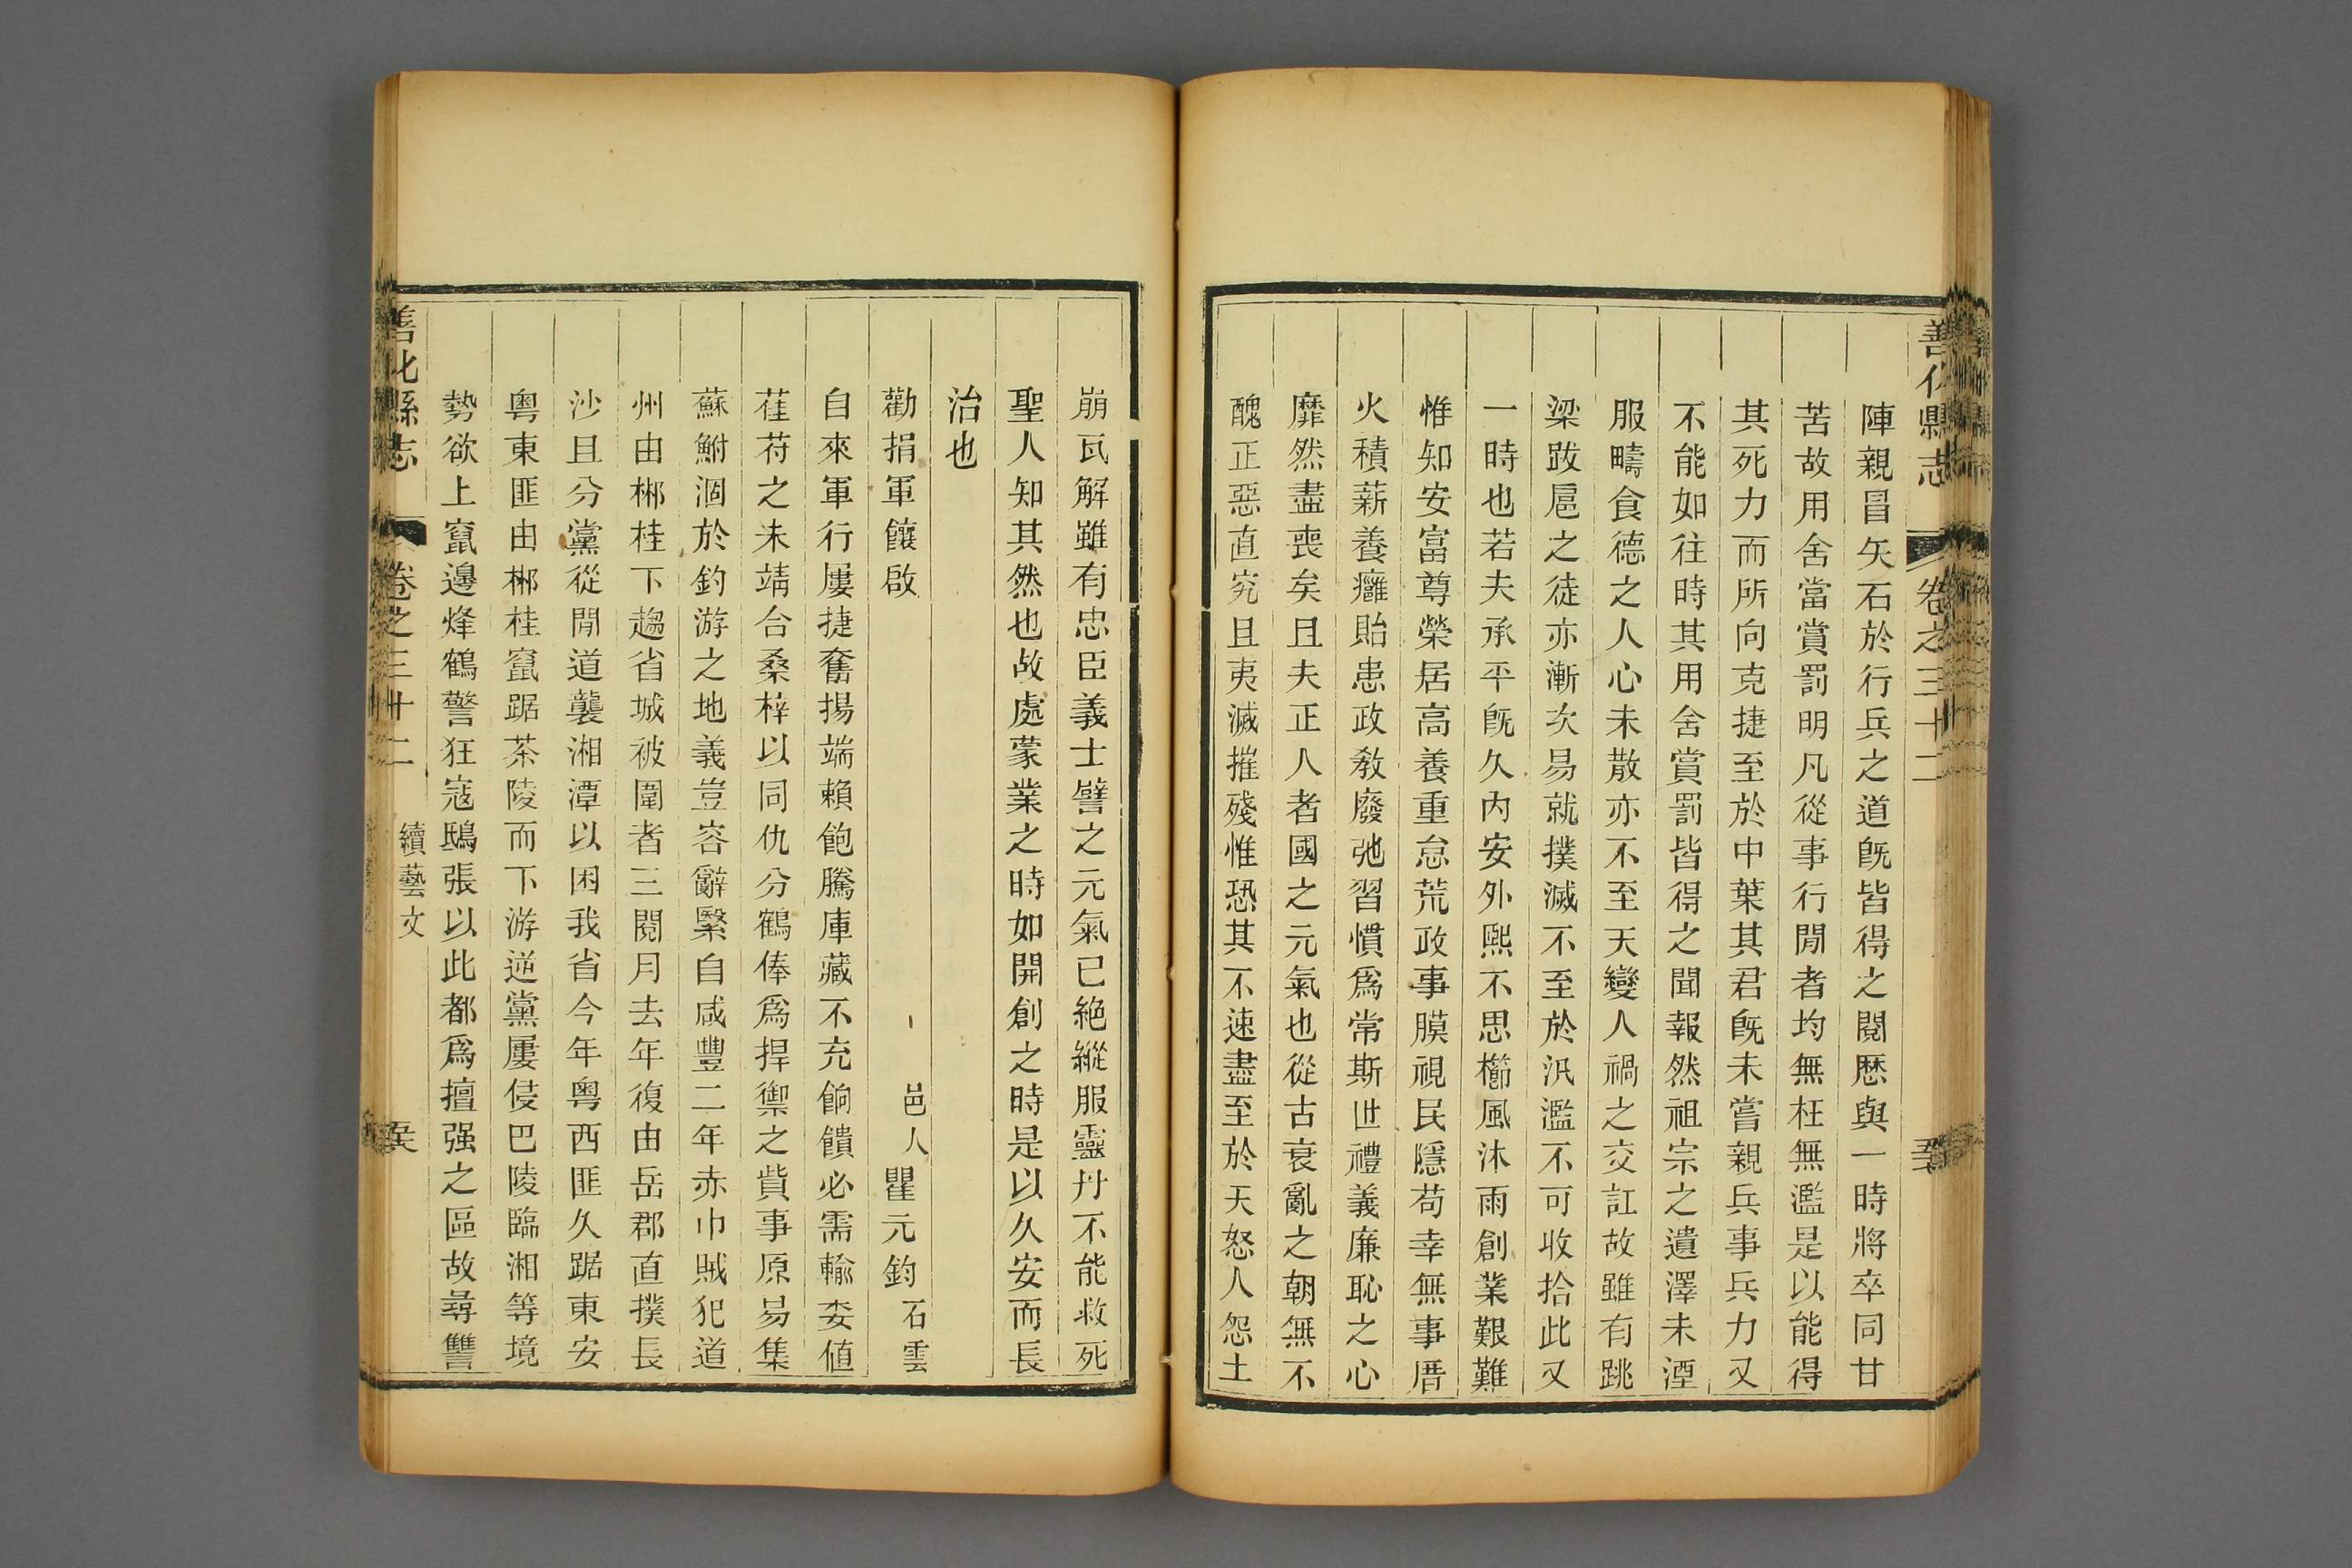 善化縣志 卷之三十二
陣親冒矢石於行兵之道旣皆得之閱歷與一時將卒同甘
苦故用舍當賞罰明凡從事行閒者均無枉無濫是以能得
其死力而所向克捷至於中葉其君旣未嘗親兵事兵力又
不能如往時其用舍賞罰皆得之聞報然祖宗之遺澤未湮
服疇食德之人心未散亦不至天變人禍之交訌故雖有跳
梁跋扈之徒亦漸次易就撲滅不至於汎濫不可收拾此又
一時也若夫承平旣久內安外熙不思櫛風沐雨創業艱難
惟知安富尊榮居高養重怠荒政事膜視民隱苟幸無事厝
火積薪養癰貽患政教廢弛習慣爲常斯世禮義廉恥之心
靡然盡喪矣且夫正人者國之元氣也從古衰亂之朝無不
醜正惡直究且夷滅摧殘惟恐其不速盡至於天怒人怨土
崩瓦解雖有忠臣義士譬之元氣已絶縱服靈丹不能救死
聖人知其然也故處蒙業之時如開創之時是以久安而長
治也
勸捐軍饟啟 邑人瞿元鈞石雲
自來軍行屢捷奮揚端賴飽騰庫藏不充餉饋必需輸委値
萑苻之未靖合桑梓以同仇分鶴俸爲捍禦之貲事原易集
蘇鮒涸於釣游之地義豈容辭緊自咸豐二年赤巾賊犯道
州由郴桂下趨省城被圍者三閱月去年復由岳郡直撲長
沙且分黨從閒道襲湘潭以困我省今年粵西匪久踞東安
粵東匪由郴桂竄踞茶陵而下游逆黨屢侵巴陵臨湘等境
勢欲上竄邊烽鶴警狂寇鴟張以此都爲擅强之區故尋讐
善化縣志 卷之三十二 續藝文